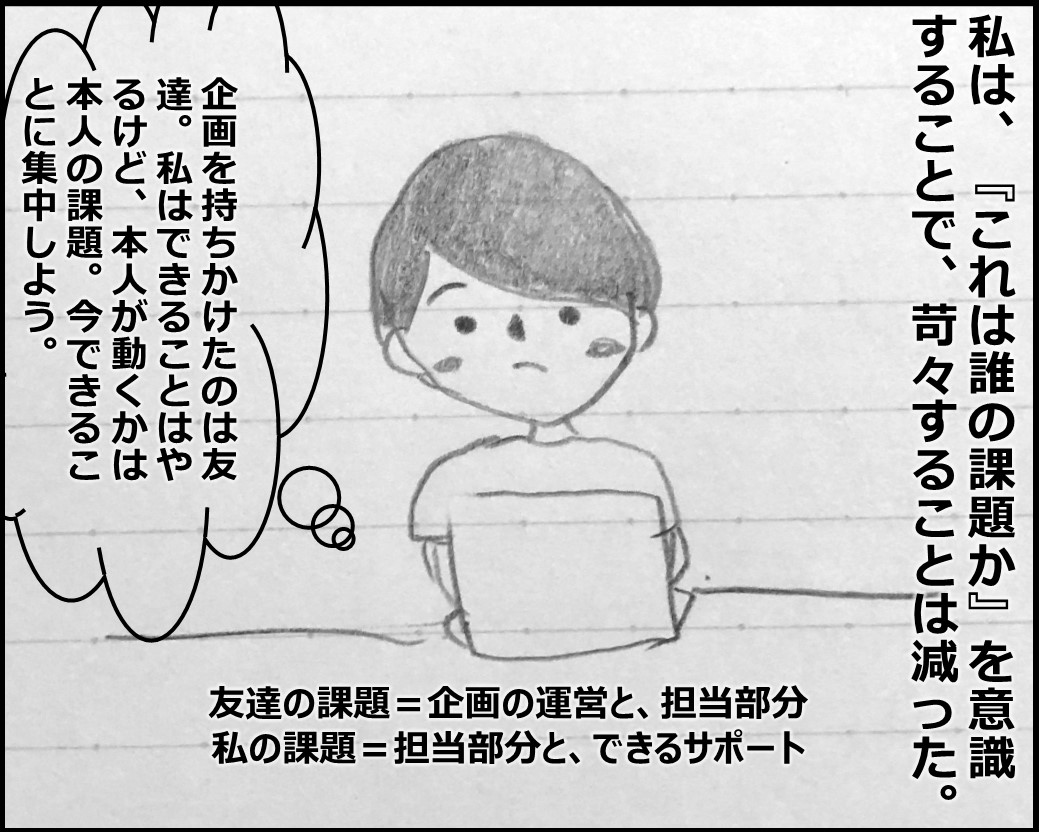 私は、『これは誰の課題か』を意識
することで、苛々することは減った。
企画を持ちかけたのは友
達。私はできることはや
るけど、本人が動くかは
本人の課題。今できるこ
とに集中しよう。
友達の課題＝企画の運営と、担当部分
私の課題＝担当部分と、できるサポート